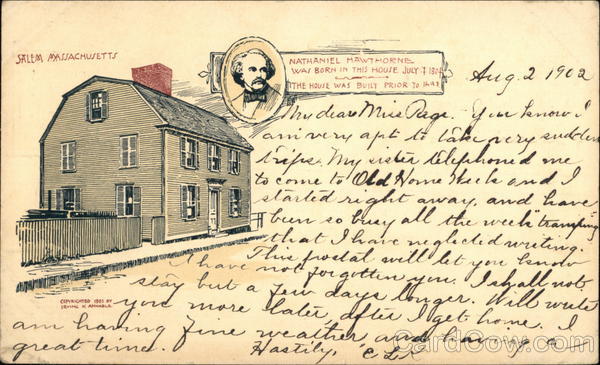 SALEM MASSACHUSETTS
NATHANIEL HAWTHORNE
WAS BORN IN THIS HOUSE JULY 4 1804
THE HOUSE WAS BUILT PRIOR TO 1692
Aug. 2 1902
My dear Miss Page. You know I
am very apt to take very sudden
trips. My sister telephoned me
to come to Old Home Week and I
started right away, and have
been so busy all the week "tramping"
that I have neglected writing.
This postal will let you know
I have not forgotten you. I shall not
stay but a few days longer. Will write
you more later, after I get home. I
am having fine weather and having a
great time. Hastily,
COPYRIGHTED 1901 BY
IRVING K. ANNABLE
CardCow.com